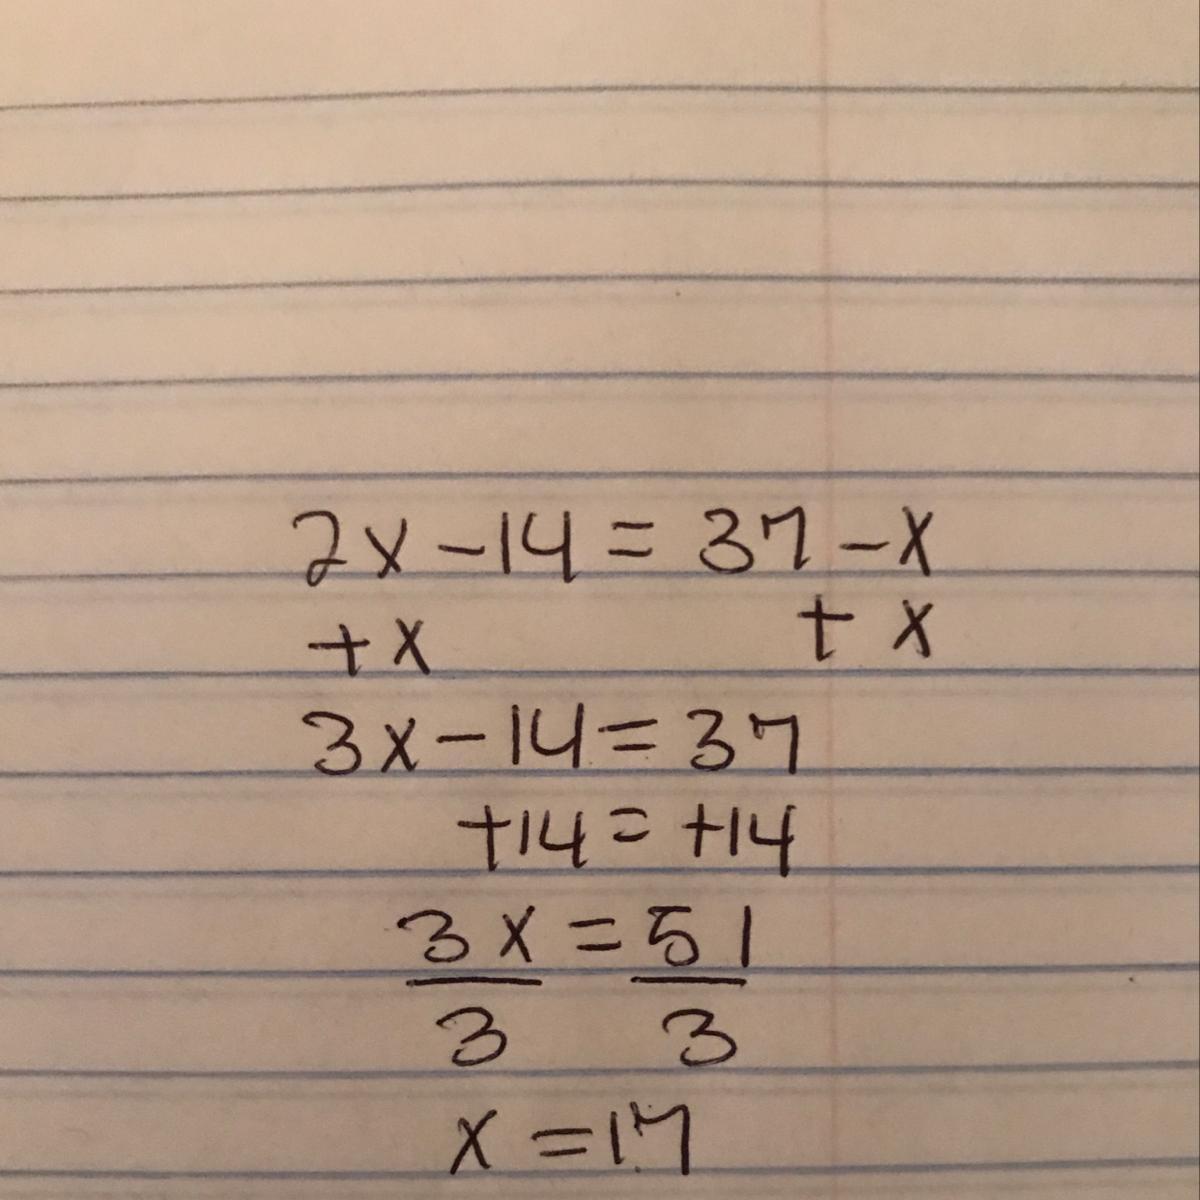 2x - 14 = 37 - x
+ x + x
3x - 14 = 37
+14 = +14
3x = 51
3 3
x = 17